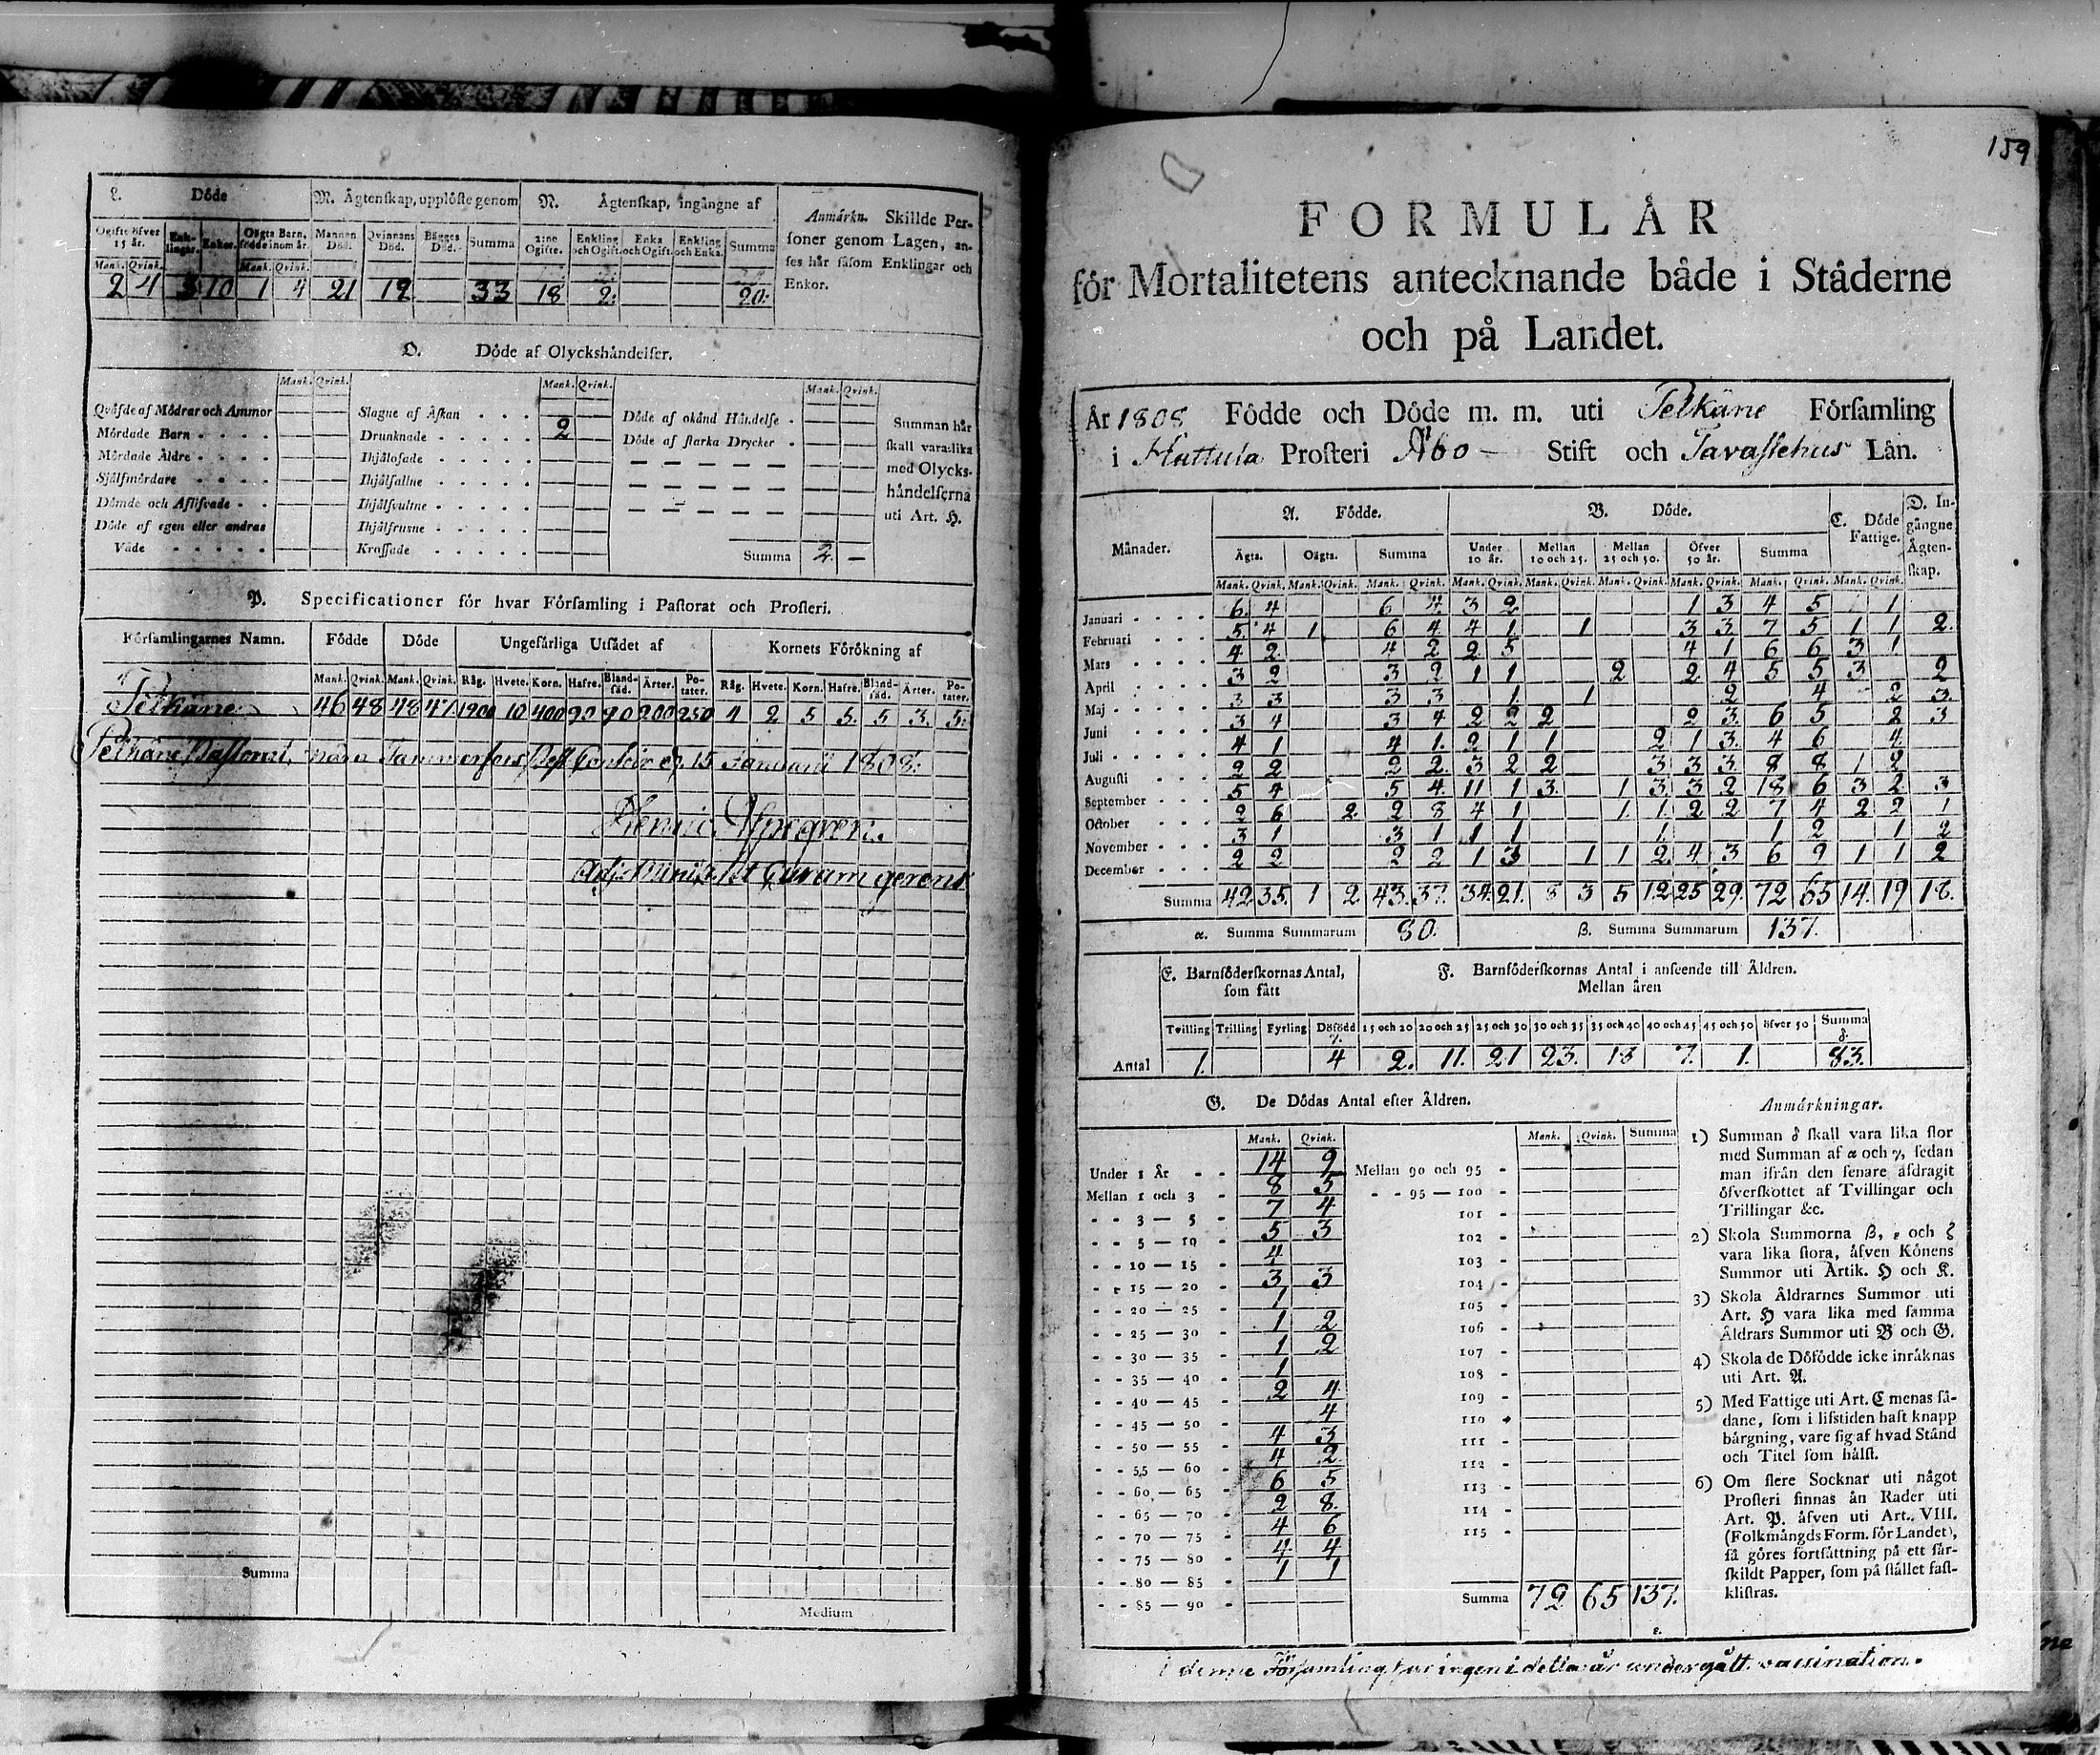 L. Döde
M. Ägtenskap, upplöste genom
N. Ägtenskap, ingångne af
Anmärkn. Skillde Per-
soner genom Lagen, an-
ses här såsom Enklingar och
Enkor.
Ogifte öfver 15 år. Enk-lingar. Enkor. Oägta Barn, födde inom år. Mannen Död. Qvinnans Död. Bägges Död. Summa 2:ne Ogifte. Enkling och Ogift. Enka och Ogift. Enkling och Enka. Summa
Mank. Qvink. Mank. Qvink.
2 4 3 10 1 4 21 12 33 18 2. 20.
O. Döde af Olyckshändelser.
Mank. Qvink. Mank. Qvink. Mank. Qvink.
Qväfde af Mödrar och Ammor
Mördade Barn
Mördade Äldre
Sjelfmördare
Dömde och Aflifvade
Döde af egen eller andras
Våde
Slagne af Åskan
Drunknade 2
Ihjälosade
Ihjälfallne
Ihjälsvultne
Ihjälfrusne
Krossade
Döde af okänd Händelse
Döde af starka Drycker
Summa 2. —
Summan här
skall vara lika
med Olycks-
händelserna
uti Art. H.
P. Specificationer för hvar Församling i Pastorat och Prosteri.
Församlingarnes Namn. Födde Döde Ungefärliga Utsädet af Kornets Förökning af
Mank. Qvink. Mank. Qvink. Råg. Hvete. Korn. Hafre. Bland-säd. Ärter. Po-tater. Råg. Hvete. Korn. Hafre. Bland-säd. Ärter. Po-tater.
Pelkäne 46 48 48 47 1200 10 400 90 90 200 250 4 2 5 5. 5 3. 5.
Pelkäne Pastorat, 15 Januarii 1808.
Henric
Adj. Minist. et Curam gerens
Summa
Medium
159
FORMULÄR
för Mortalitetens antecknande både i Städerne
och på Landet.
År 1808 Födde och Döde m. m. uti Pelkäne Församling
i Hattula Prosteri Åbo — Stift och Tavastehus Län.
Månader.
A. Födde.
B. Döde.
C. Döde Fattige.
D. In-gångne Ägten-skap.
Ägta. Oägta. Summa Under 10 år. Mellan 10 och 25. Mellan 25 och 50. Öfver 50 år. Summa
Mank. Qvink. Mank. Qvink. Mank. Qvink. Mank. Qvink. Mank. Qvink. Mank. Qvink. Mank. Qvink. Mank. Qvink. Mank. Qvink.
Januari 6. 4 6 4. 3 2 1 3 4 5 1
Februari 5. 4 1 6 4. 4 1 1 3 3. 7 5 1 1 2.
Mars 4 2. 4 2 2 5 4 1 6 6 3 1
April 3 2 3 2 1 1 2 2 4 5 5 3 2
Maj 3 3 3 3 1 1 2 4 2 3
Juni 3 4 3 4 2 2 2 2 3. 6 5 2 3
Juli 4 1 4 1. 2 1 1 2 1 3. 4 6 4.
Augusti 2 2 2 2. 3 2 2 3 3 3. 8 8 1 2
September 5 4 5 4. 11 1 3. 1 3. 3 2 18 6 3 2 3
October 2 6 2. 2 8 4 1 1. 1. 2 2 7 4 2 2 1
November 3 1 3 1 1 1 1. 1 2 1 2
December 2 2 2 2 1 3 1 1 2. 4 3 6 9 1 1 2
Summa 42 35. 1 2. 43. 37. 34. 21. 8 3 5 12. 25 29. 72 65 14. 19 18.
α. Summa Summarum 80. β. Summa Summarum 137.
E. Barnföderskornas Antal,
som fått
F. Barnföderskornas Antal i anseende till Äldren.
Mellan åren
Tvilling Trilling Fyrling Döfödd γ. 15 och 20 20 och 25 25 och 30 30 och 35 35 och 40 40 och 45 45 och 50 öfver 50 Summa δ.
Antal 1. 4 2. 11. 21 23. 18 7. 1. 83.
G. De Dödas Antal efter Äldren.
Mank. Qvink. Mank. Qvink. Summa
Under 1 År 14 9
Mellan 1 och 3 8 5
3 — 5 7 4
5 — 10 5 3
10 — 15 4
15 — 20 3 3
20 — 25 1
25 — 30 1 2
30 — 35 1 2
35 — 40 1
40 — 45 2 4
45 — 50 4
50 — 55 4 3
55 — 60 4 2
60 — 65 6 5
65 — 70 2 8.
70 — 75 4 6
75 — 80 4. 4
80 — 85 1 1
85 — 90
Mellan 90 och 95
95 — 100
101
102
103
104
105
106
107
108
109
110
111
112
113
114
115
Summa 72 65 137.
ε.
Anmärkningar.
1) Summan δ skall vara lika stor
med Summan af α och γ, sedan
man ifrån den senare afdragit
öfverskottet af Tvillingar och
Trillingar &c.
2) Skola Summorna β, ε och ζ
vara lika stora, äfven Könens
Summor uti Artik. H och K.
3) Skola Äldrarnes Summor uti
Art. H vara lika med samma
Äldrars Summor uti B och G.
4) Skola de Döfödde icke inräknas
uti Art. A.
5) Med Fattige uti Art. C menas så-
dane, som i lifstiden haft knapp
bärgning, vare sig af hvad Stånd
och Titel som hälst.
6) Om flere Socknar uti något
Prosteri finnas än Rader uti
Art. P. äfven uti Art. VIII.
(Folkmängds Form. för Landet),
så göres fortsättning på ett sär-
skildt Papper, som på stället fast-
klistras.
i denne Församling har ingen i detta år undergått vaccination.